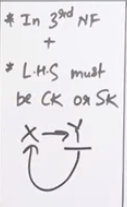 * In 3rd NF
+
* L.H.S must
be CK or SK
X → Y